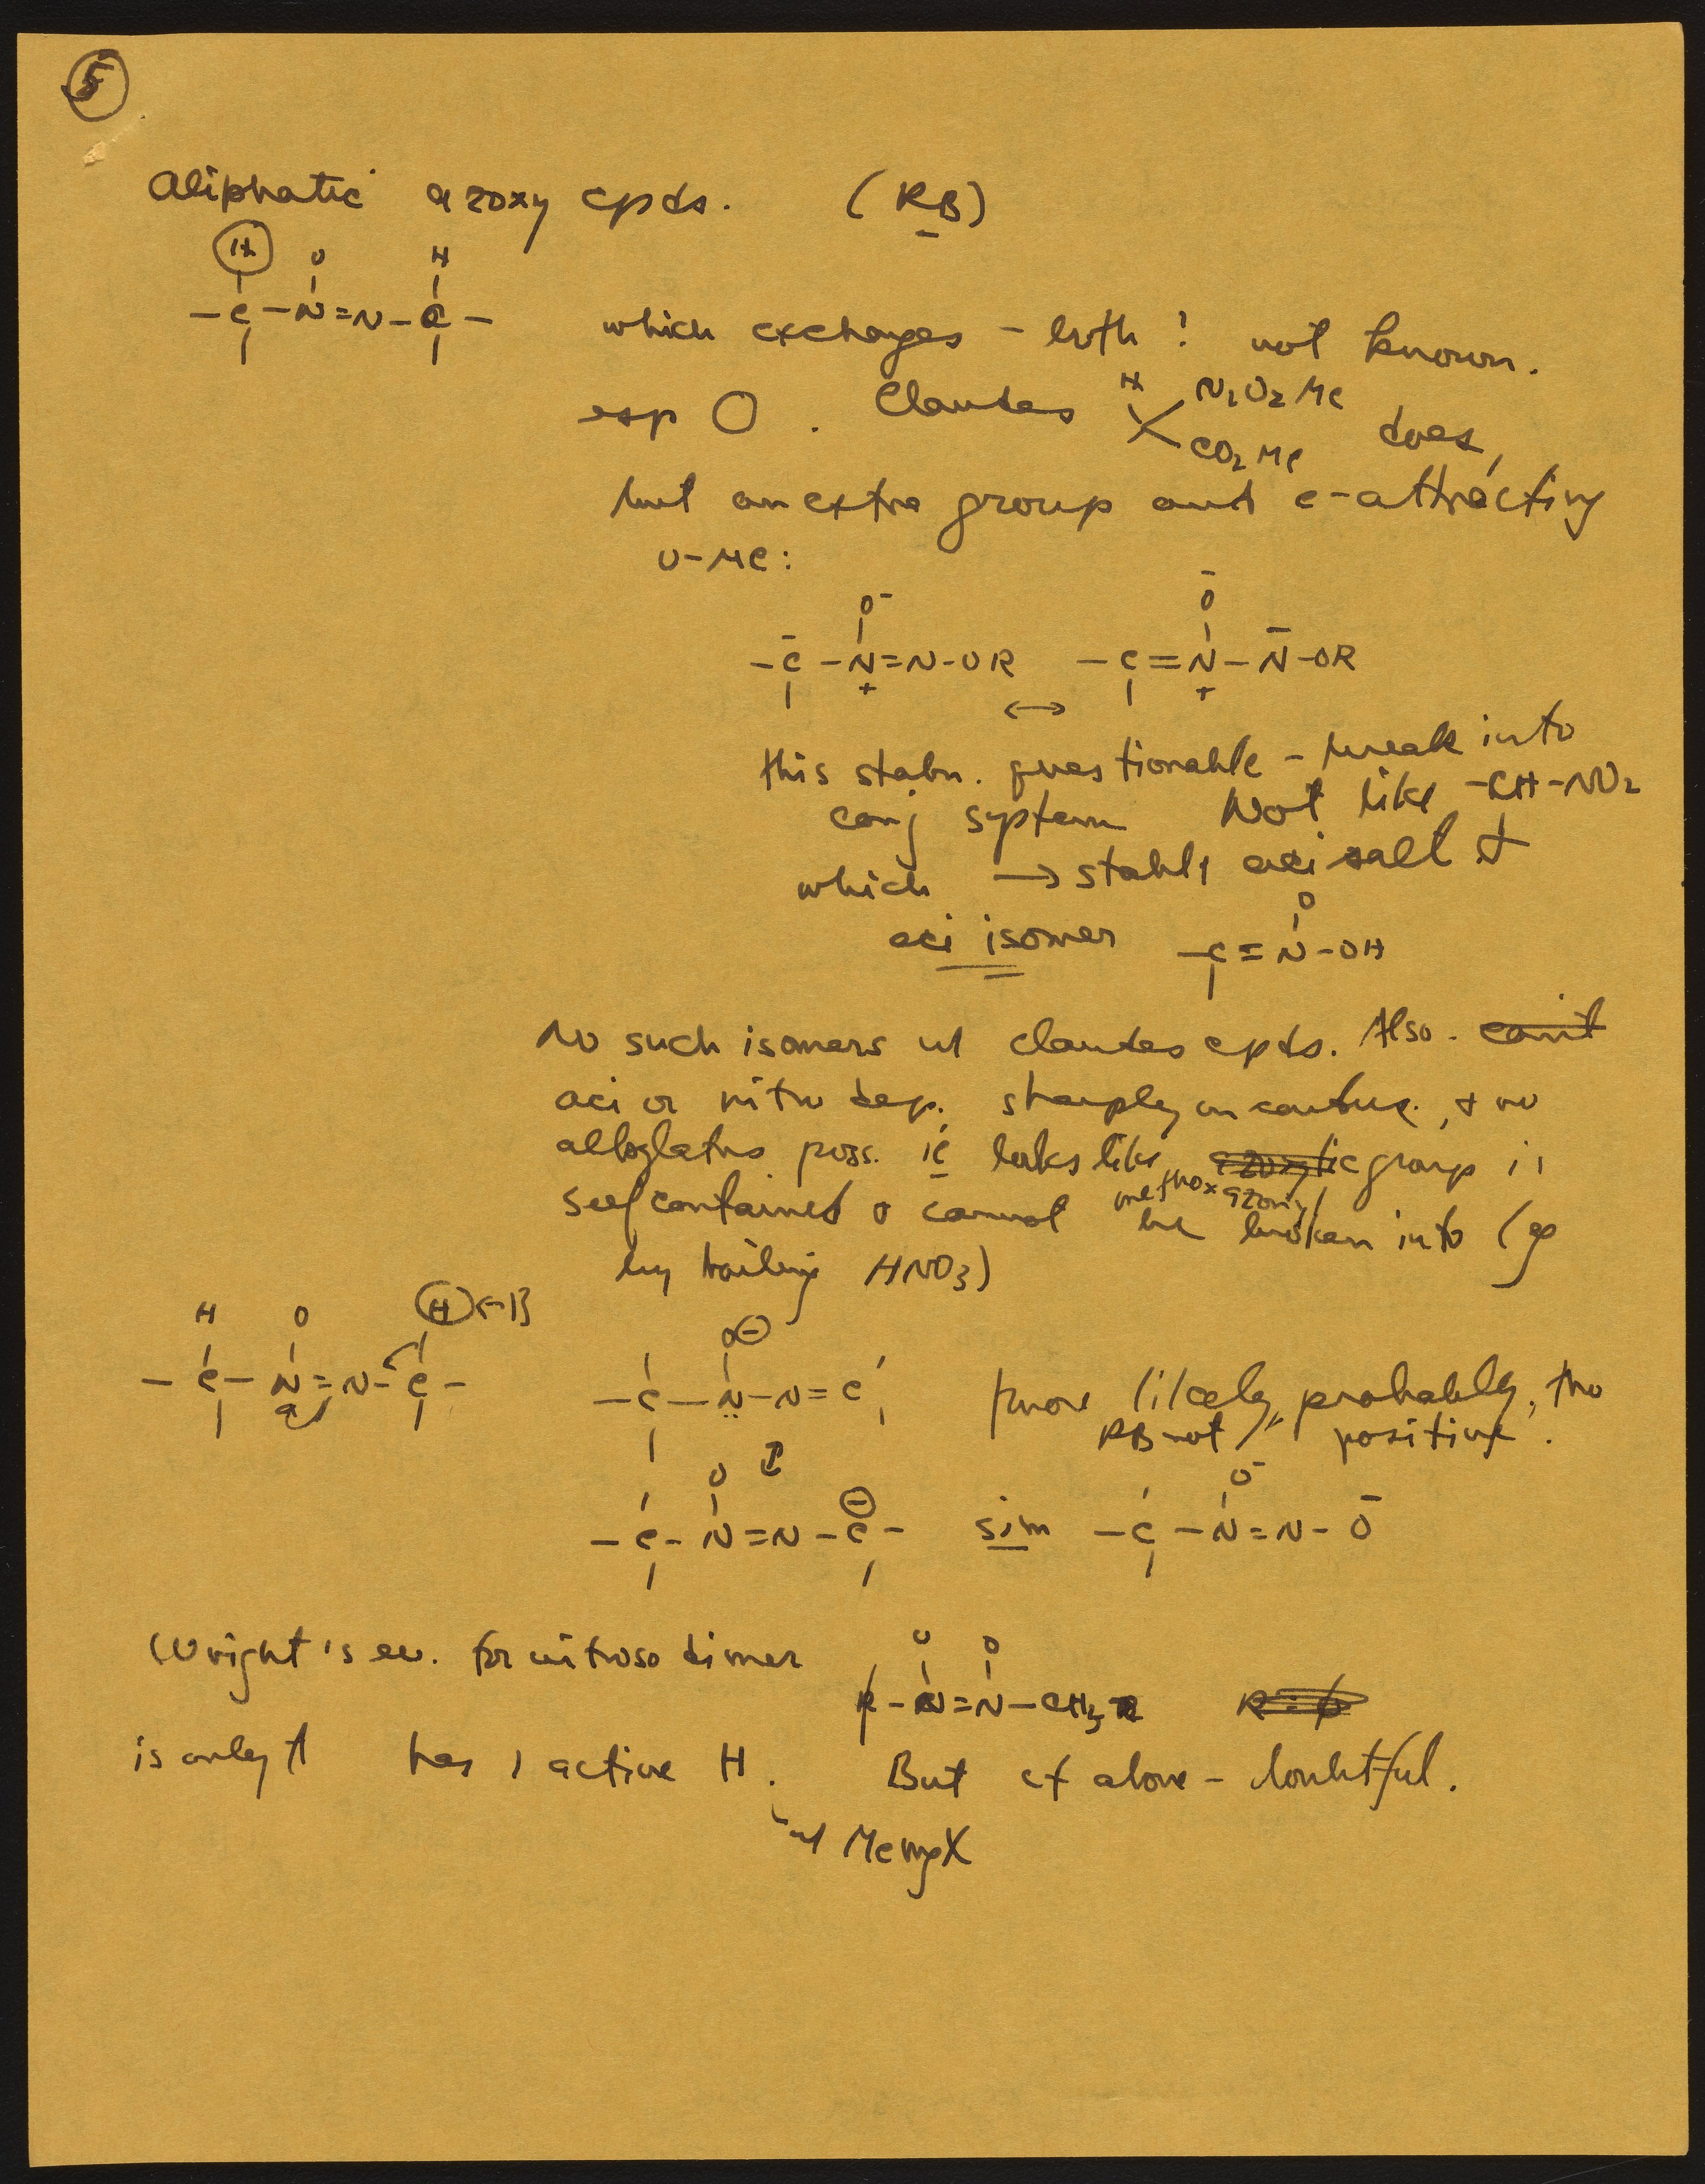 5
Aliphatic azoxy cpds. (RB)
H O H
-C-N=N-C-
which exchanges - both? not known.
esp O. Claudes H N2O2Me CO2Me does,
but an extra group and e-attracting
O-Me:
O- O-
-C-N=N-OR ↔ -C=N-N-OR
+ +
this stabn. questionable - break into
conj system Not like -CH-NO2
which → stable aci salt &
aci isomer -C=N-OH
O
No such isomers w Claudes cpds. Also. can't
aci or nitro dep. sharply on
poss. ie looks like azoxy group is
self contained & cannot be broken into (eg
methoxazonyl
by boiling HNO3)
H O H ←B
-C-N=N-C-
O⊖
-C-N-N=C
more likely, probably, tho
RB not positive.
↕
O ⊖ O-
-C-N=N-C- sim -C-N=N-O-
Wright's ev. for nitroso dimer
O O
-N=N-CH3
is only has 1 active H. But cf above - doubtful.
w MeMgX